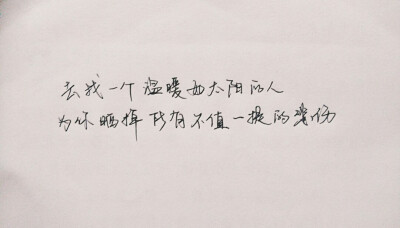 去找一个温暖如太阳的人
为你晒掉所有不值一提的伤